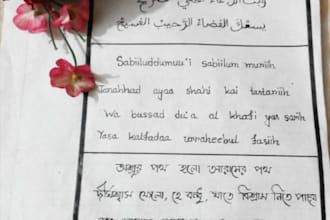 وبث الدعاء الخفي صارخ
يسعك الفضاء الرحيب الفسيح
Sabiiluddumuu'i sabiilum muriih
Tanahhad ayaa shahi kai tastariih
Wa bussad du'a al khafi yas sarih
Yasa kalfadaa urraheebul fasiih
অশ্রুর পথ হলো আরামের পথ
দীর্ঘশ্বাস ফেলো, হে বন্ধু, যাতে বিশ্রাম নিতে পারো